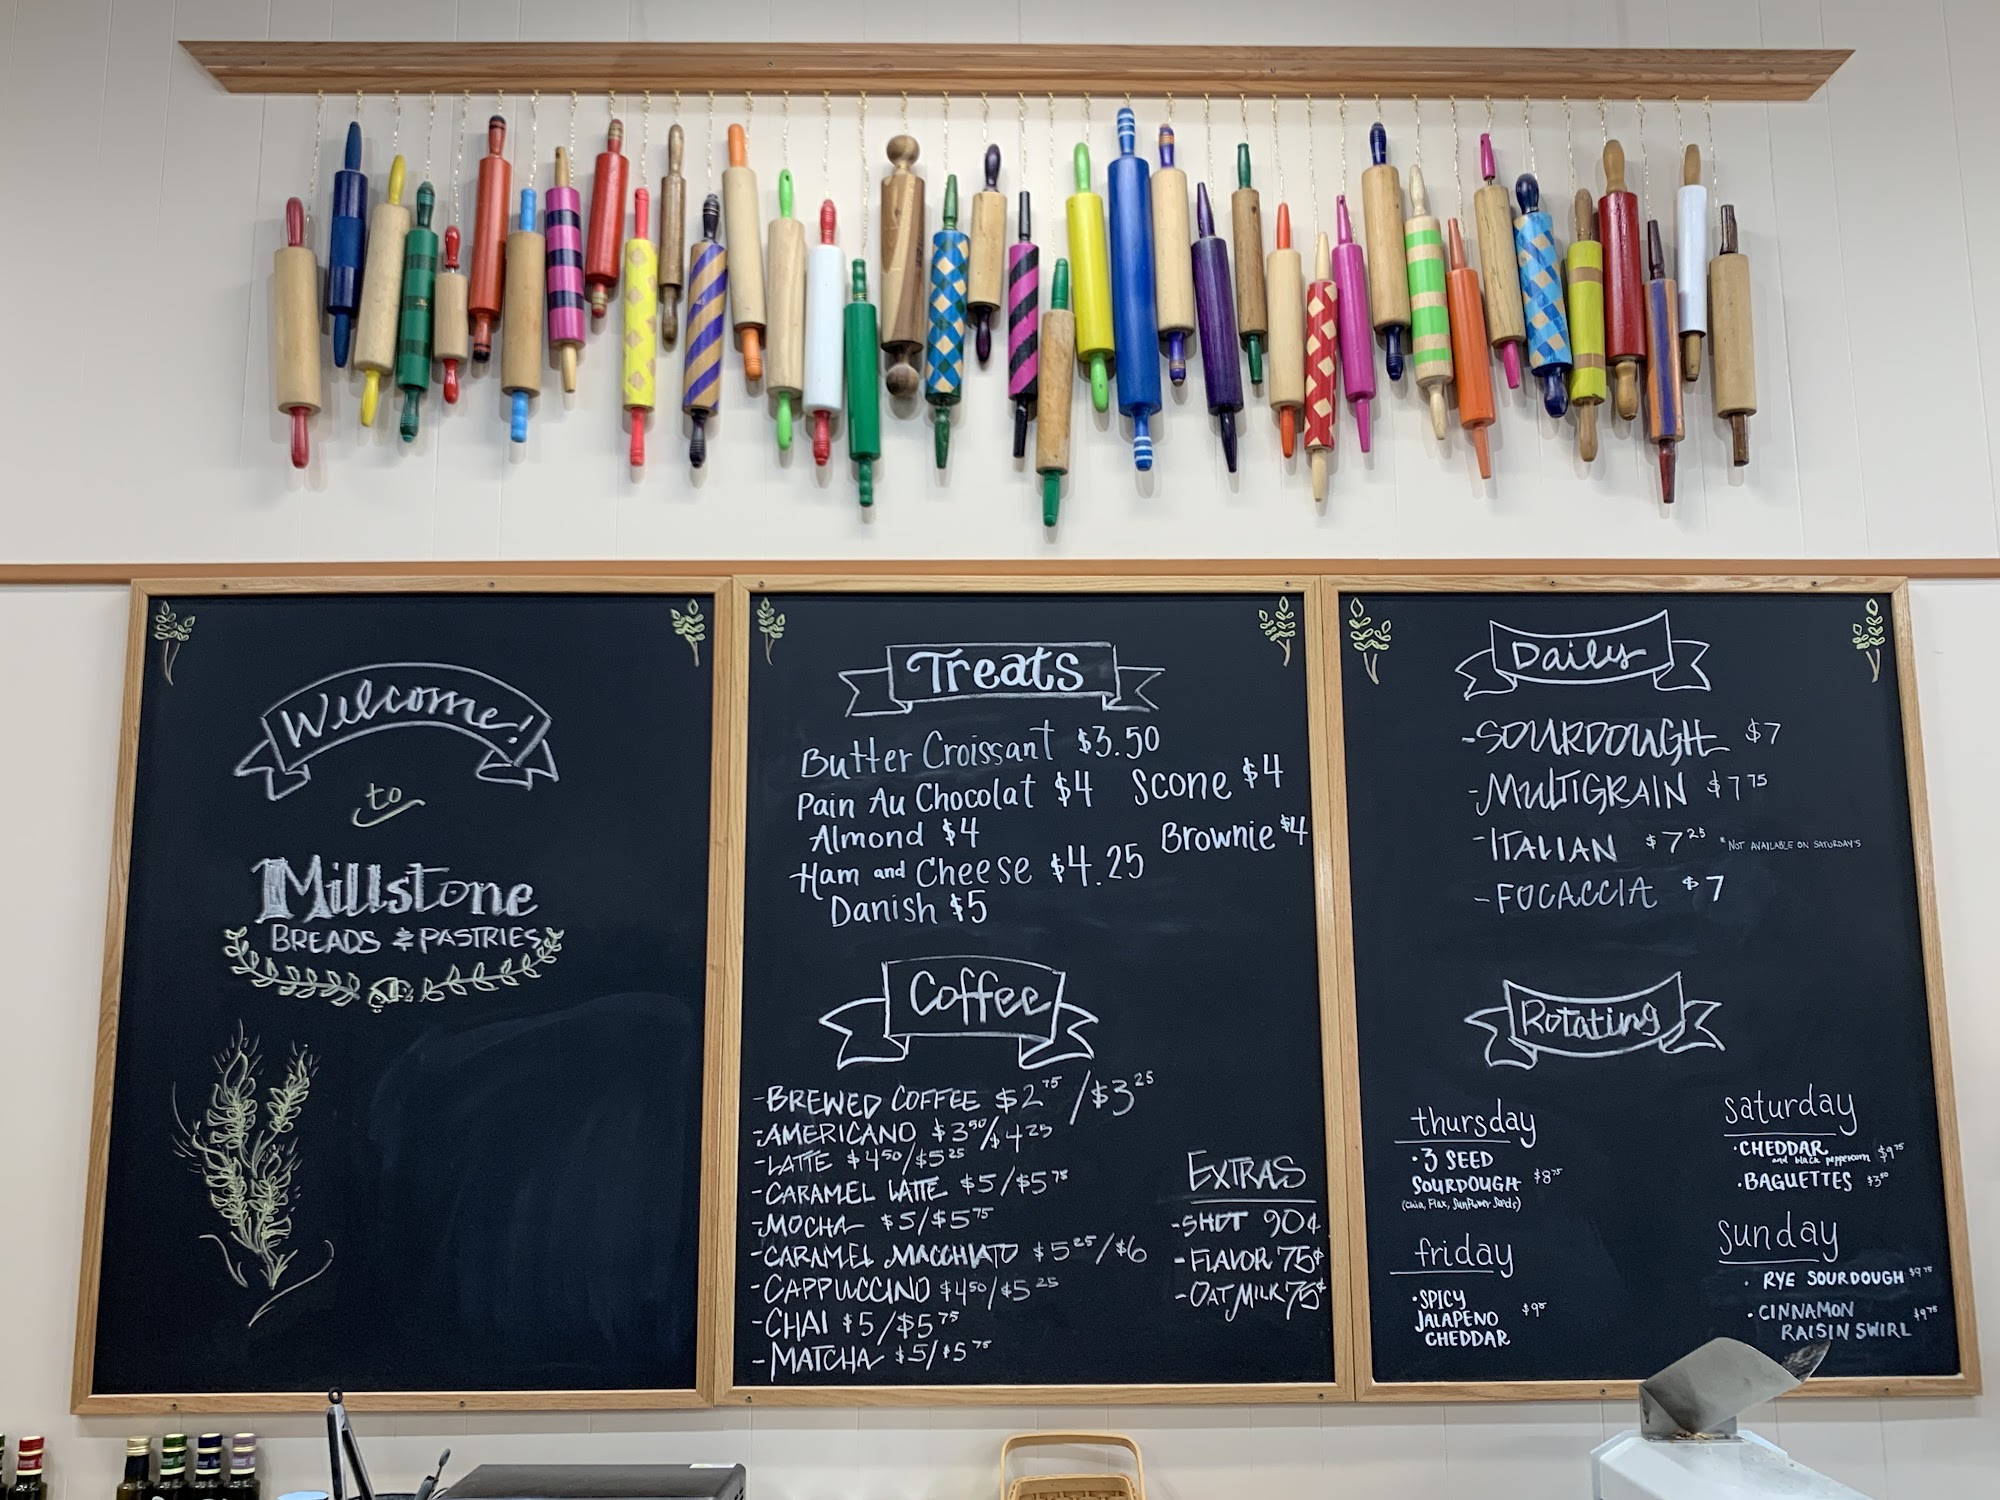 Welcome!
to
Millstone
BREADS & PASTRIES
Treats
Butter Croissant $3.50
Pain Au Chocolat $4
Almond $4
Ham and Cheese $4.25
Danish $5
Scone $4
Brownie $4
Coffee
-BREWED COFFEE $2 75 / $3 25
-AMERICANO $3 50 / $4 25
-LATTE $4 50 / $5 25
-CARAMEL LATTE $5 / $5 75
-MOCHA $5 / $5 75
-CARAMEL MACCHIATO $5 25 / $6
-CAPPUCCINO $4 50 / $5 25
-CHAI $5 / $5 75
-MATCHA $5 / $5 75
EXTRAS
-SHOT 90¢
-FLAVOR 75¢
-OAT MILK 75¢
Daily
-SOURDOUGH $7
-MULTIGRAIN $7 75
-ITALIAN $7 25 *NOT AVAILABLE ON SATURDAYS
-FOCACCIA $7
Rotating
thursday
•3 SEED
SOURDOUGH $8 75
(Chia, Flax, Sunflower Seeds)
friday
•SPICY
JALAPENO $9
CHEDDAR
saturday
•CHEDDAR $9 75
and black peppercorn
•BAGUETTES $3 50
sunday
• RYE SOURDOUGH $9 75
•CINNAMON $9 75
RAISIN SWIRL